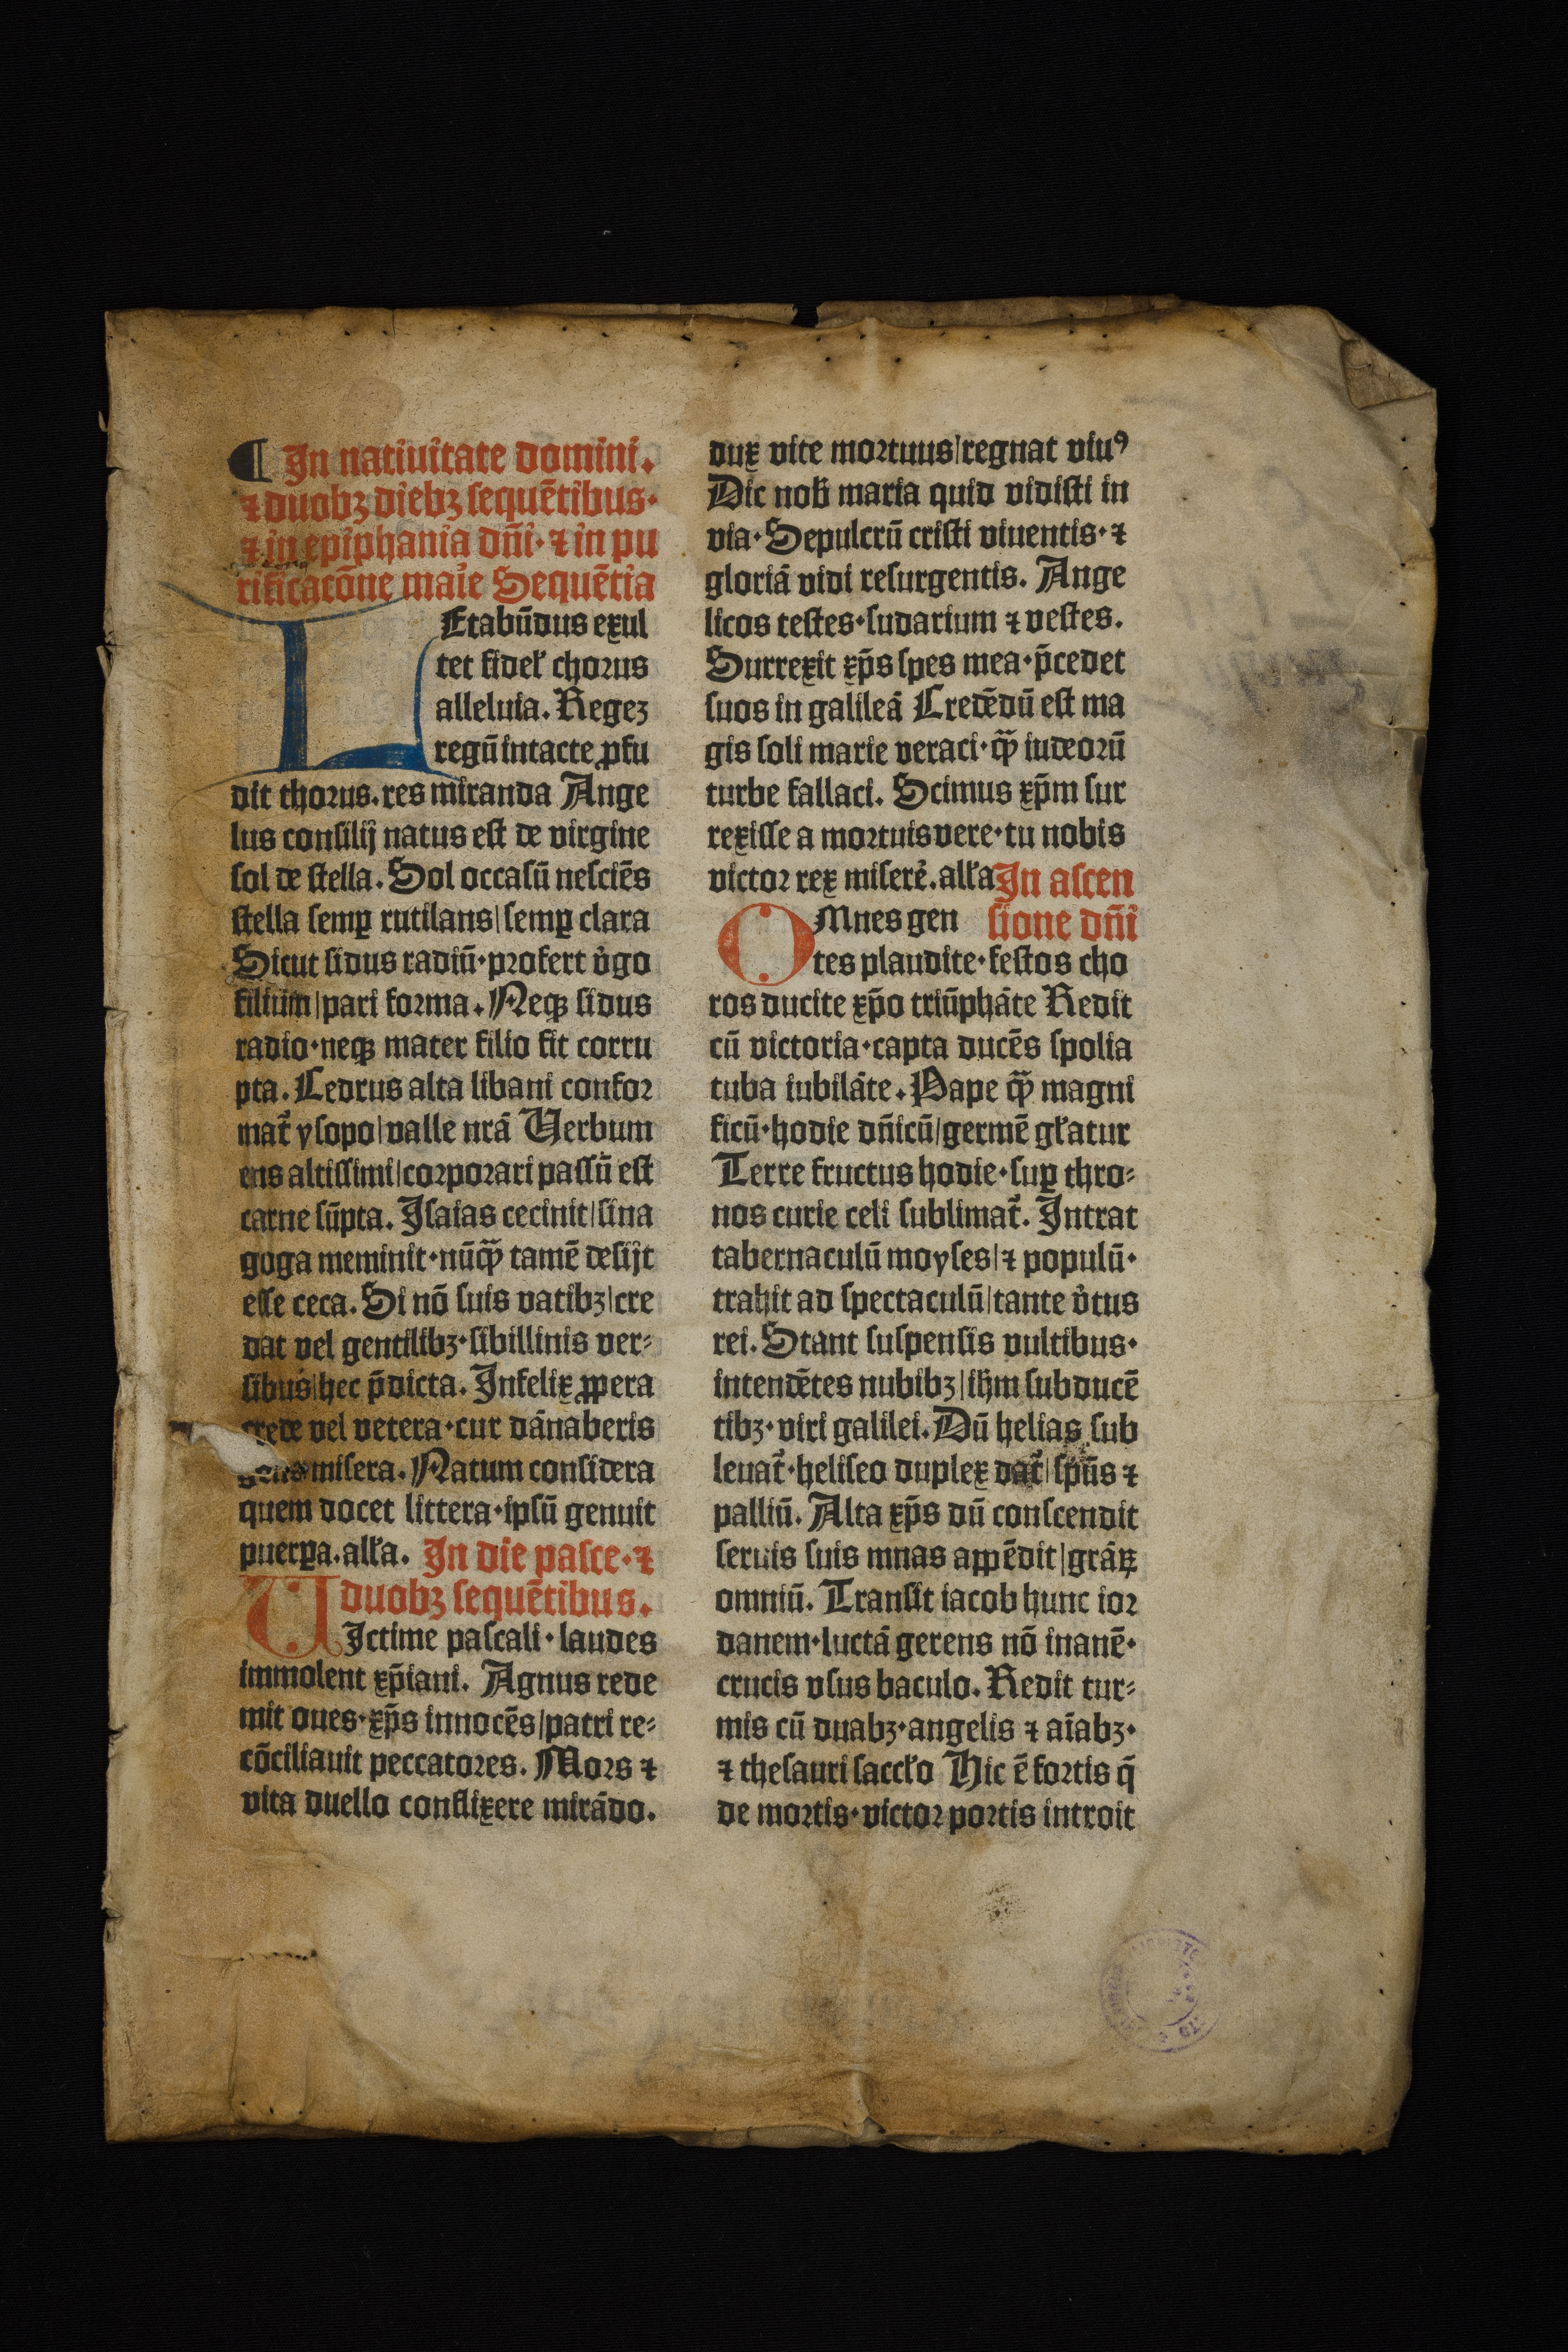 ¶ In natiuitate domini.
⁊ duobꝫ diebꝫ ſequētibus·
⁊ in epiphania dn̄i· ⁊ in pu
rificacōne maīe Sequētia
LEtabūdus exul
tet fidel̓ chorus
alleluia. Regeꝫ
regū intacte ꝓfu
dit thorus. res miranda Ange
lus conſilij natus eſt de virgine
ſol de ſtella. Sol occaſū neſciēs
ſtella ſemꝑ rutilans/ſemꝑ clara
Sicut ſidus radiū·profert v̓go
filium/pari forma. Neqꝫ ſidus
radio·neqꝫ mater filio fit corru
pta. Cedrus alta libani confor
mat᷑ yſopo/valle nrā Uerbum
ens altiſſimi/corporari paſſū eſt
carne ſūpta. Iſaias cecinit/ſina
goga meminit·nūqꝫ̄ tamē deſijt
eſſe ceca. Si nō ſuis vatibꝫ/cre
dat vel gentilibꝫ·ſibillinis ver⸗
ſibus/hec p̄dicta. Infelix ꝓpera
crede vel vetera·cur dānaberis
gens miſera. Natum conſidera
quem docet littera·ipſū genuit
puerꝑa. all̓a. In die paſce·⁊
duobꝫ ſequētibus.
UIctime paſcali·laudes
immolent xp̄iani. Agnus rede
mit oues·xp̄s innocēs/patri re⸗
cōciliauit peccatores. Mors ⁊
vita duello conflixere mirādo.
dux vite mortuus/regnat viuꝰ
Dic nob̓ maria quid vidiſti in
via·Sepulcrū criſti viuentis·⁊
gloriā vidi reſurgentis. Ange
licos teſtes·ſudarium ⁊ veſtes.
Surrexit xp̄s ſpes mea·p̄cedet
ſuos in galileā Credēdū eſt ma
gis ſoli marie veraci·qꝫ̄ iudeorū
turbe fallaci. Scimus xp̄m ſur
rexiſſe a mortuis vere·tu nobis
victor rex miſere᷑. all̓a In aſcen
OMnes gen ſione dn̄i
tes plaudite·feſtos cho
ros ducite xp̄o triūphāte Redit
cū victoria·capta ducēs ſpolia
tuba iubilāte. Pape qꝫ̄ magni
ficū·hodie dn̄icū/germē gl̓atur
Terre fructus hodie·ſuꝑ thro⸗
nos curie celi ſublimat᷑. Intrat
tabernaculū moyſes/⁊ populū·
trahit ad ſpectaculū/tante v̓tus
rei. Stant ſuſpenſis vultibus·
intendētes nubibꝫ/ih̄m ſubducē
tibꝫ·viri galilei. Dū helias ſub
leuat᷑·heliſeo duplex dat᷑/ſpūs ⁊
palliū. Alta xp̄s dū conſcendit
ſeruis ſuis mnas aꝓēdit/grāꝝ
omniū. Tranſit iacob hunc ior
danem·luctā gerens nō inanē·
crucis vſus baculo. Redit tur⸗
mis cū duabꝫ·angelis ⁊ aīabꝫ·
⁊ theſauri ſaccl̓o Hic ē fortis q̄
de mortis·victor portis introit